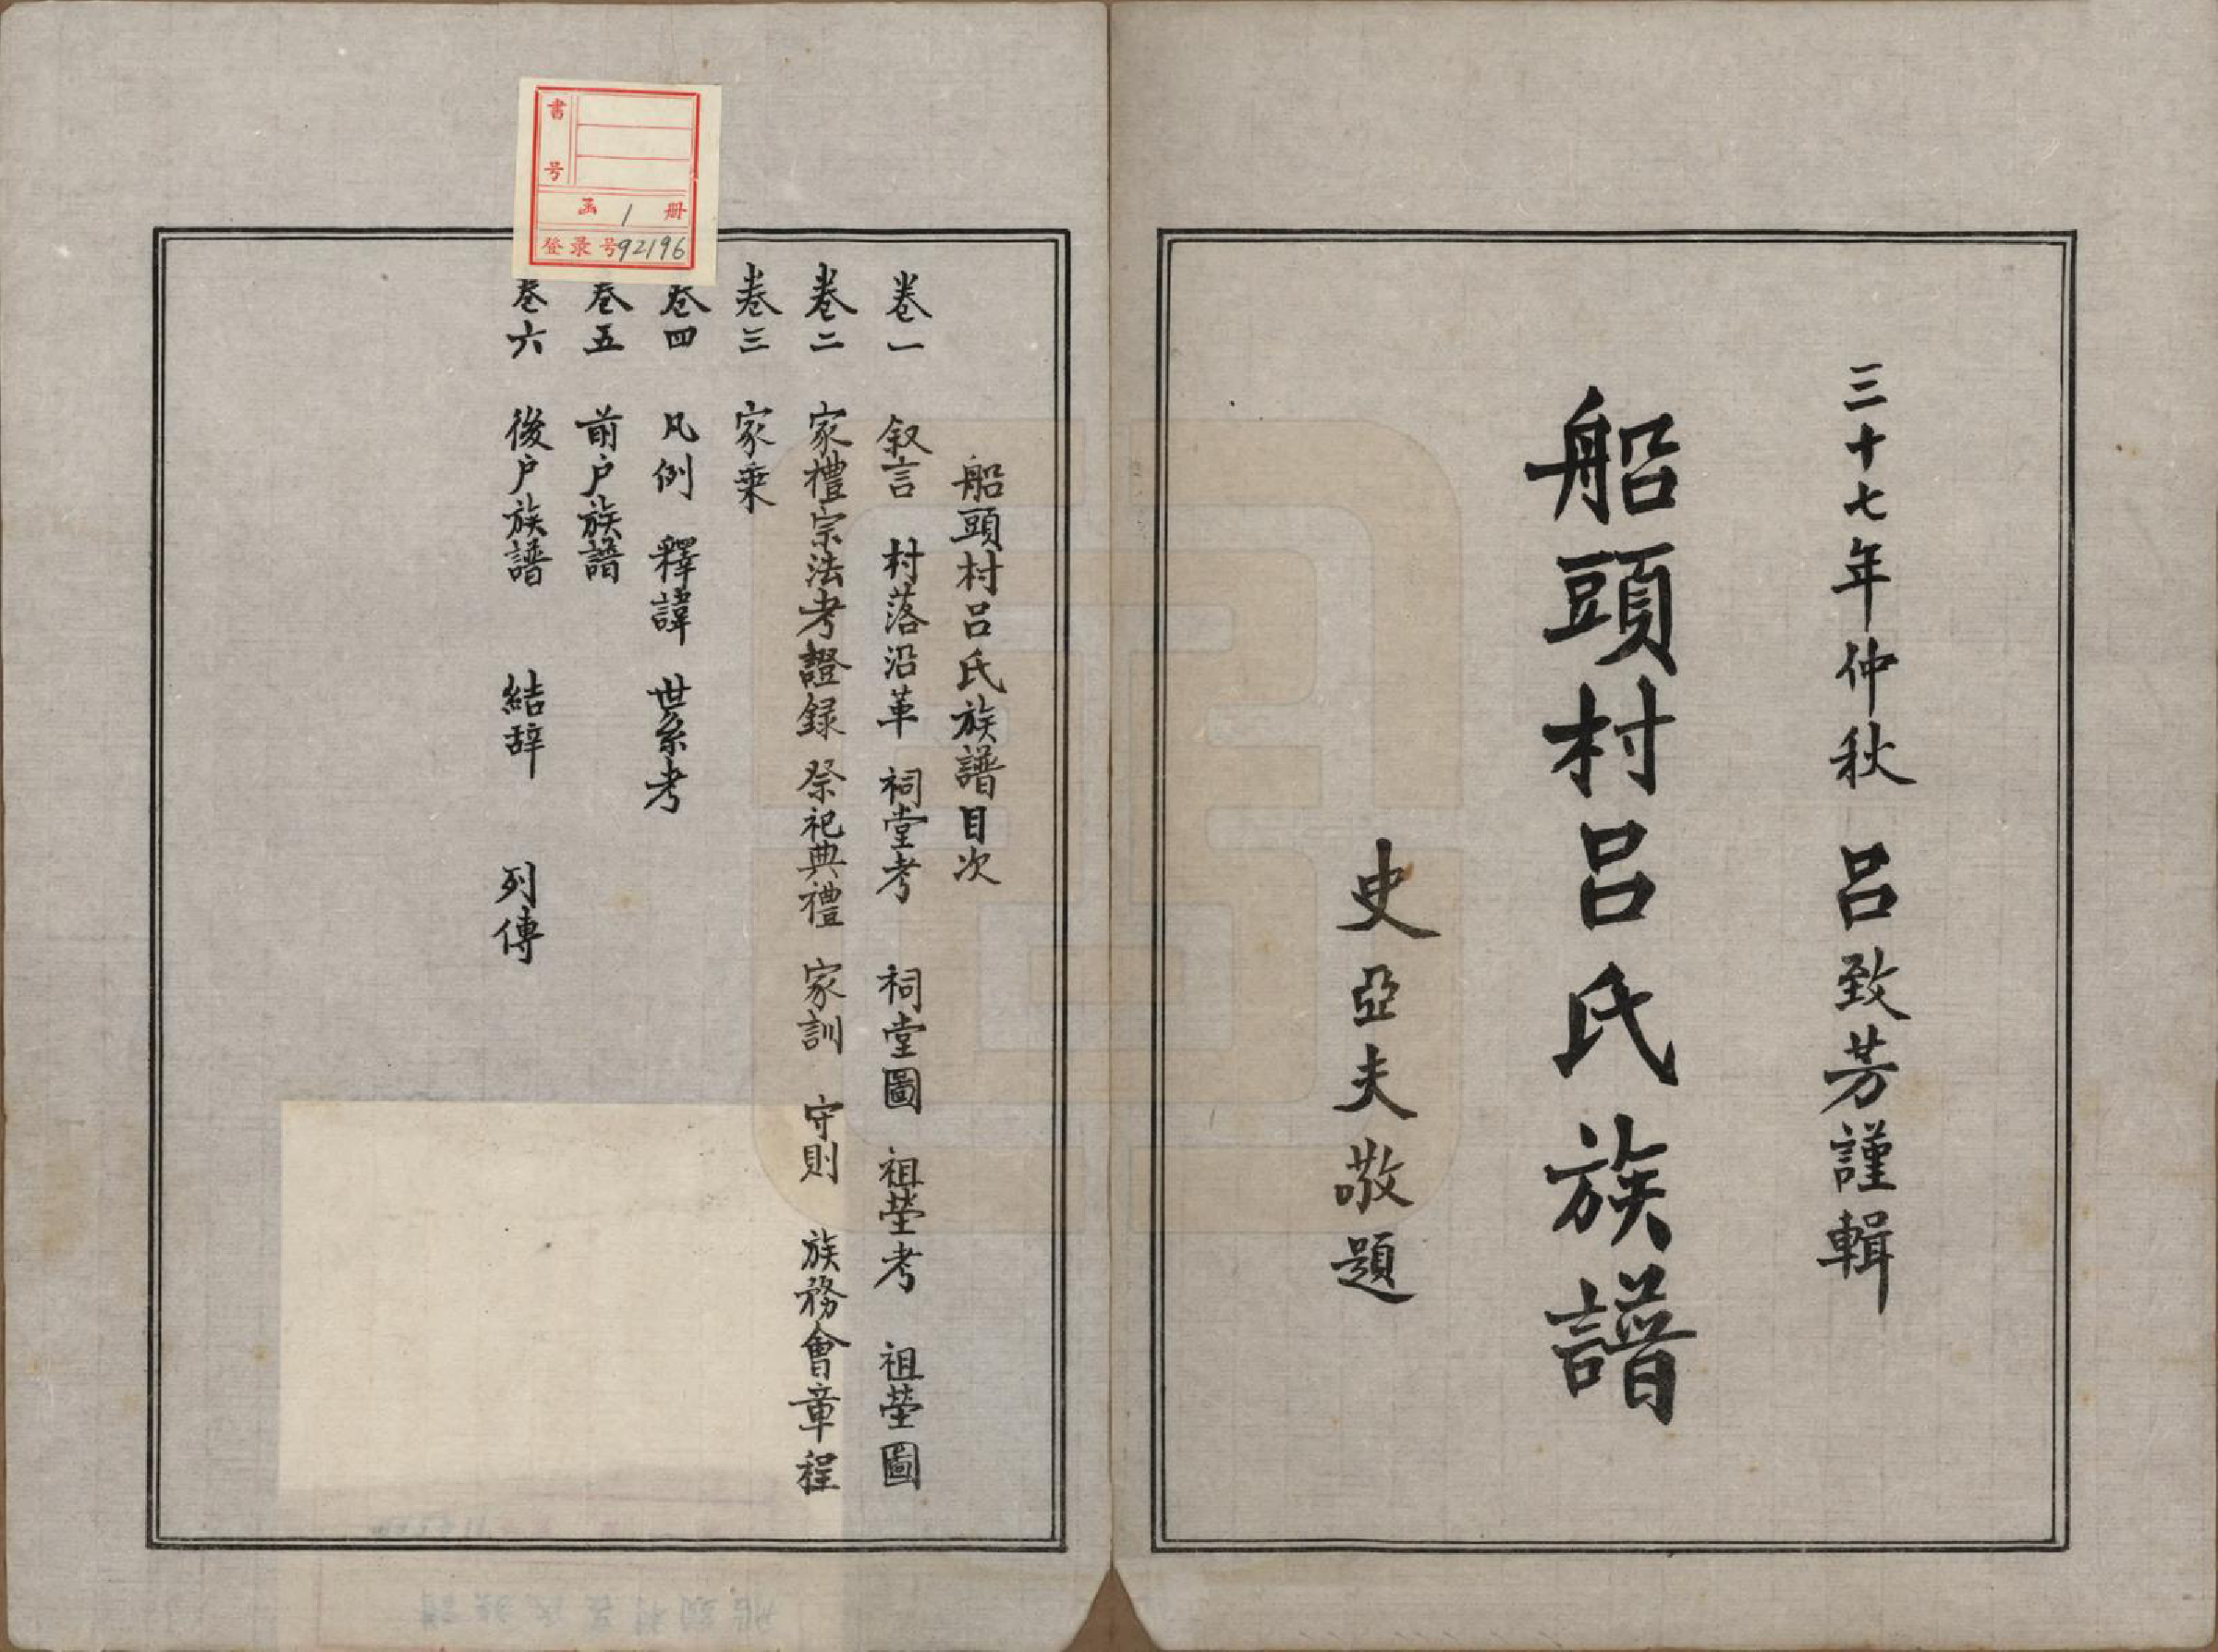 三十七年仲秋 呂致芳謹輯
船頭村呂氏族譜
史亞夫敬題
船頭村呂氏族譜目次
卷一 叙言 村落沿革 祠堂考 祠堂圖 祖塋考 祖塋圖
卷二 家禮宗法考證録 祭祀典禮 家訓 守則 族務會章程
卷三 家乗
卷四 凡例 釋諱 世系考
卷五 前户族譜
卷六 後户族譜 結辞 列傳
書号
函 1 册
登录号92196